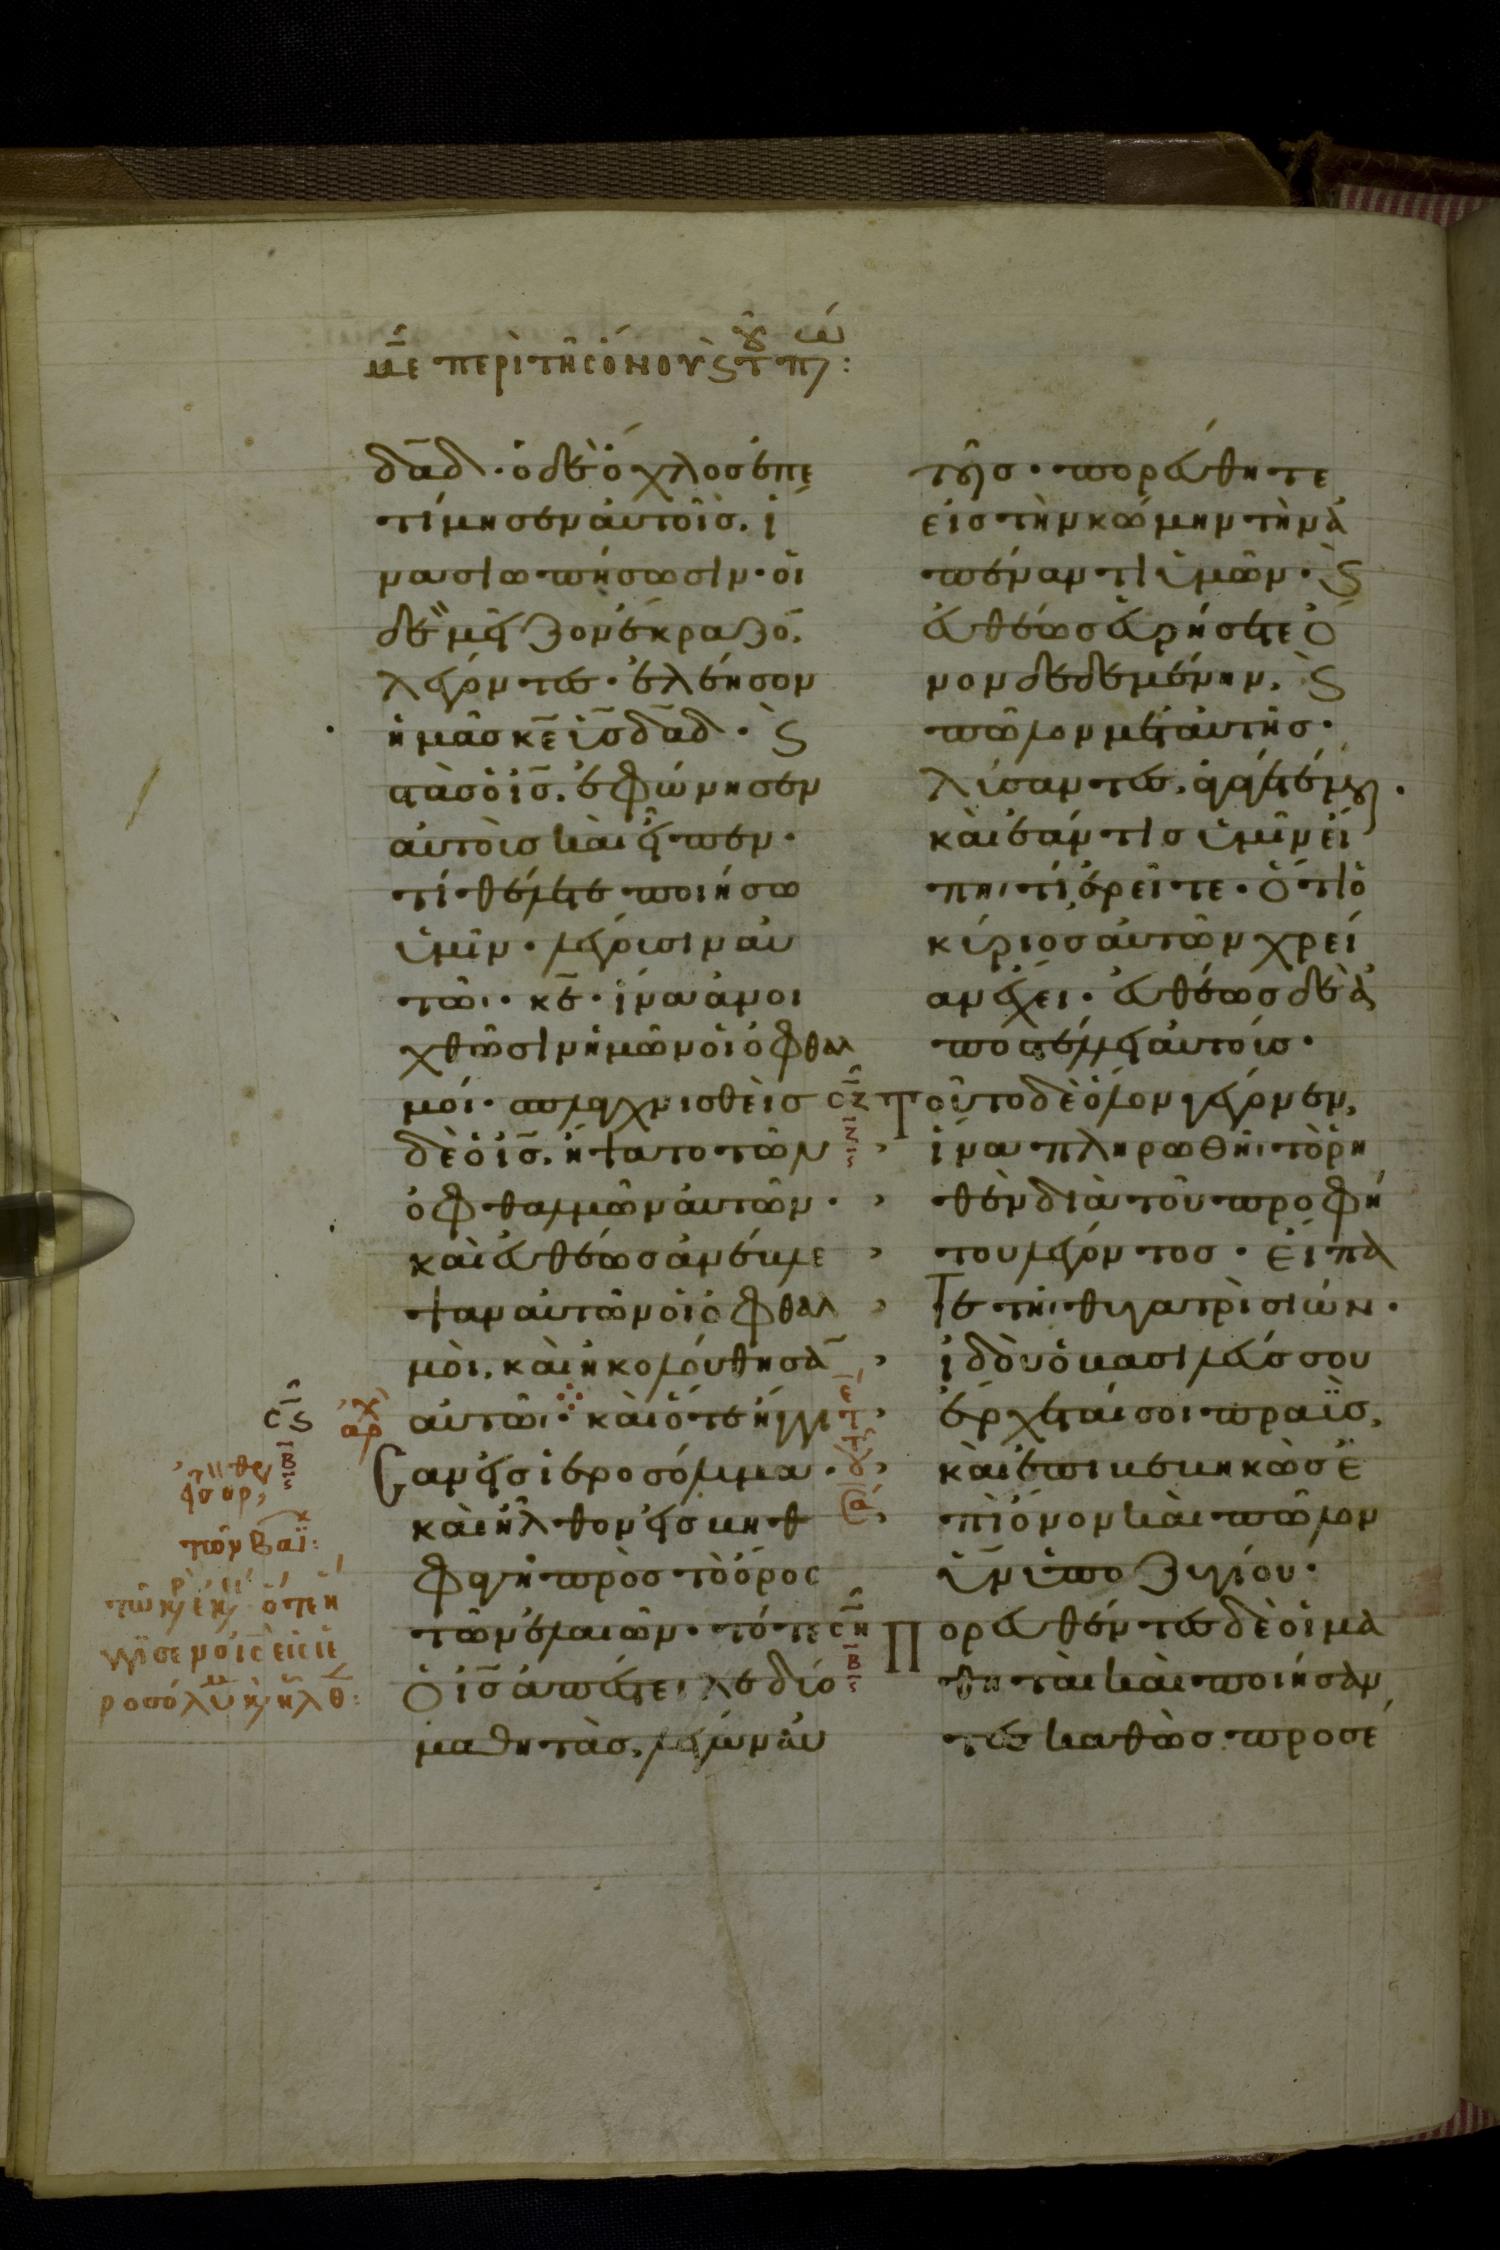 μ̅ε περὶ τῆς ὄνου ϗ τοῦ πώλ:
δα̅δ· ὁ δὲ ὄχλος ἐπε
τίμησεν αὐτοῖς. ἵ
να σιωπήσωσιν· οἱ
δὲ μεῖζον ἔκραζο̅.
λέγοντες· ἐλέησον
ἡμᾶς κ̅ε̅ υἱ̅ς̅ δα̅δ· ϗ
στὰς ὁ ἰ̅ς̅. ἐφώνησεν
αὐτοὺς καὶ εἶπεν·
τί θέλετε ποιήσω
ὑμῖν· λέγουσιν αὐ
τῶι· κ̅ε̅· ἵνα ἀνοι
χθῶσιν ἡμῶν οἱ ὀφθαλ
μοί· σπλαγχνισθεὶς
δὲ ὁ ἰ̅ς̅. ἥψατο τῶν
ὀφθαλμῶν αὐτῶν·
καὶ εὐθέως ἀνέβλε
ψαν αὐτῶν οἱ ὀφθαλ
μοὶ. καὶ ἠκολούθησα̅
αὐτῶι· καὶ ὅτε ἤγγι
σαν εἰς ἱεροσόλυμα·
καὶ ἦλθον εἰς βηθ
φαγὴ πρὸς τὸ ὄρος
τῶν ἐλαιῶν· τότε
ὁ ἰ̅ς̅ ἀπέστειλε δύο
μαθητὰς. λέγων αὐ
τοῖς· πορεύθητε
εἰς τὴν κώμην τὴν ἀ
πέναντι ὑμῶν· ϗ
εὐθέως εὑρήσετε ὄ
νον δεδεμένην. ϗ
πῶλον μετ αὐτῆς·
λύσαντες. ἀγάγετέ μοι·
καὶ ἐάν τις ὑμῖν εἴ
πηι τί, ἐρεῖτε· ὅτι ὁ
κύριος αὐτῶν χρεί
αν ἔχει· εὐθέως δὲ ἀ
ποστέλλει αὐτούς·
Τοῦτο δὲ ὅλον γέγονεν.
ἵνα πληρωθῆι τὸ ῥη
θὲν διὰ τοῦ προφή
του λέγοντος· εἴπα
τε τῆι θυγατρὶ σιών·
ἰδοὺ ὁ βασιλεύς σου
ἔρχεταί σοι πραῢς.
καὶ ἐπιβεβηκὼς ἐ
πὶ ὄνον καὶ πῶλον
υἱ̅ν̅ ὑποζυγίου·
Πορευθέντες δὲ οἱ μα
θηταὶ καὶ ποιήσαν
τες καθὼς προσέ
σ̅ϛ
β̅
ἀρχ
τῶν Βαΐ:
τῶ κ,ρ, ἐκ, ὅτε ἤ
γγισεν ὁ ἰ̅ς̅ εἰς ἱε
ροσόλυμ κ, ἦλθ:
σ̅ζ
ζ̅
σ̅η
β̅